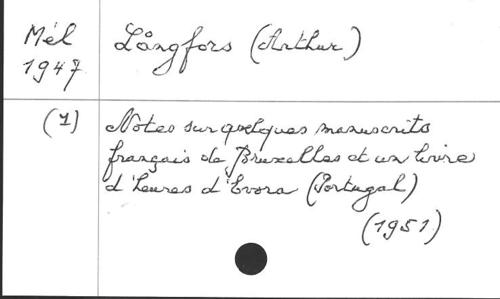 Mél
1947
Långfors (Arthur)
(1)
Notes sur quelques manuscrits
français de Bruxelles et un livre
d'heures d'Evora (Portugal)
(1951)